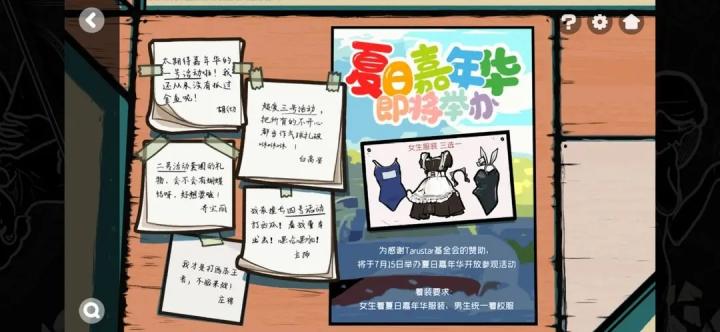 太期待嘉年华的
一号活动啦！我
还从来没有捞过
金鱼呢！
超爱三号活动，
把所有的不开心
都当作气球扎破
咻咻咻！
白高兴
二号活动套圈的礼
物，会不会有蝴蝶
结呀，好想要哦！
乔宝丽
我承包了四号活动
打西瓜！看我董卓
出击！嘿哈嘿哈！
我才是打西瓜王
者，不服来战！
庄臻
夏日嘉年华
即将举办
女生服装 三选一
为感谢Tarustar基金会的赞助，
将于7月15日举办夏日嘉年华开放参观活动
着装要求：
女生着夏日嘉年华服装，男生统一着校服